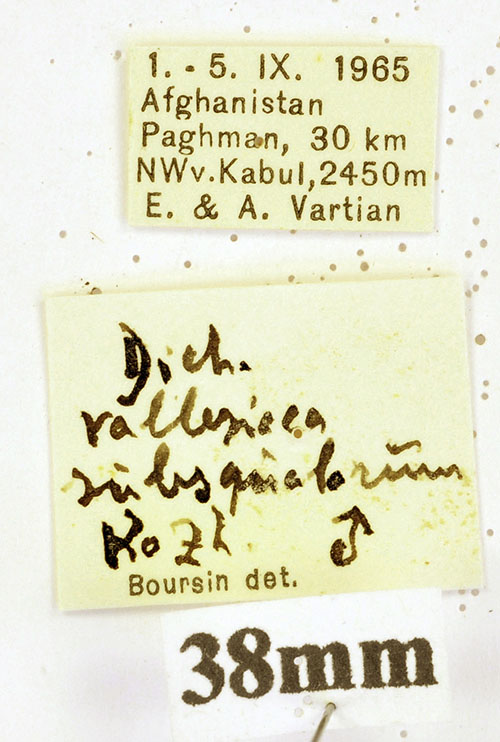 1. - 5. IX. 1965
Afghanistan
Paghman, 30 km
NWv.Kabul, 2450m
E. & A. Vartian
Dich.
vallesiaca
subsqualorum
Kozh. ♂
Boursin det.
38mm